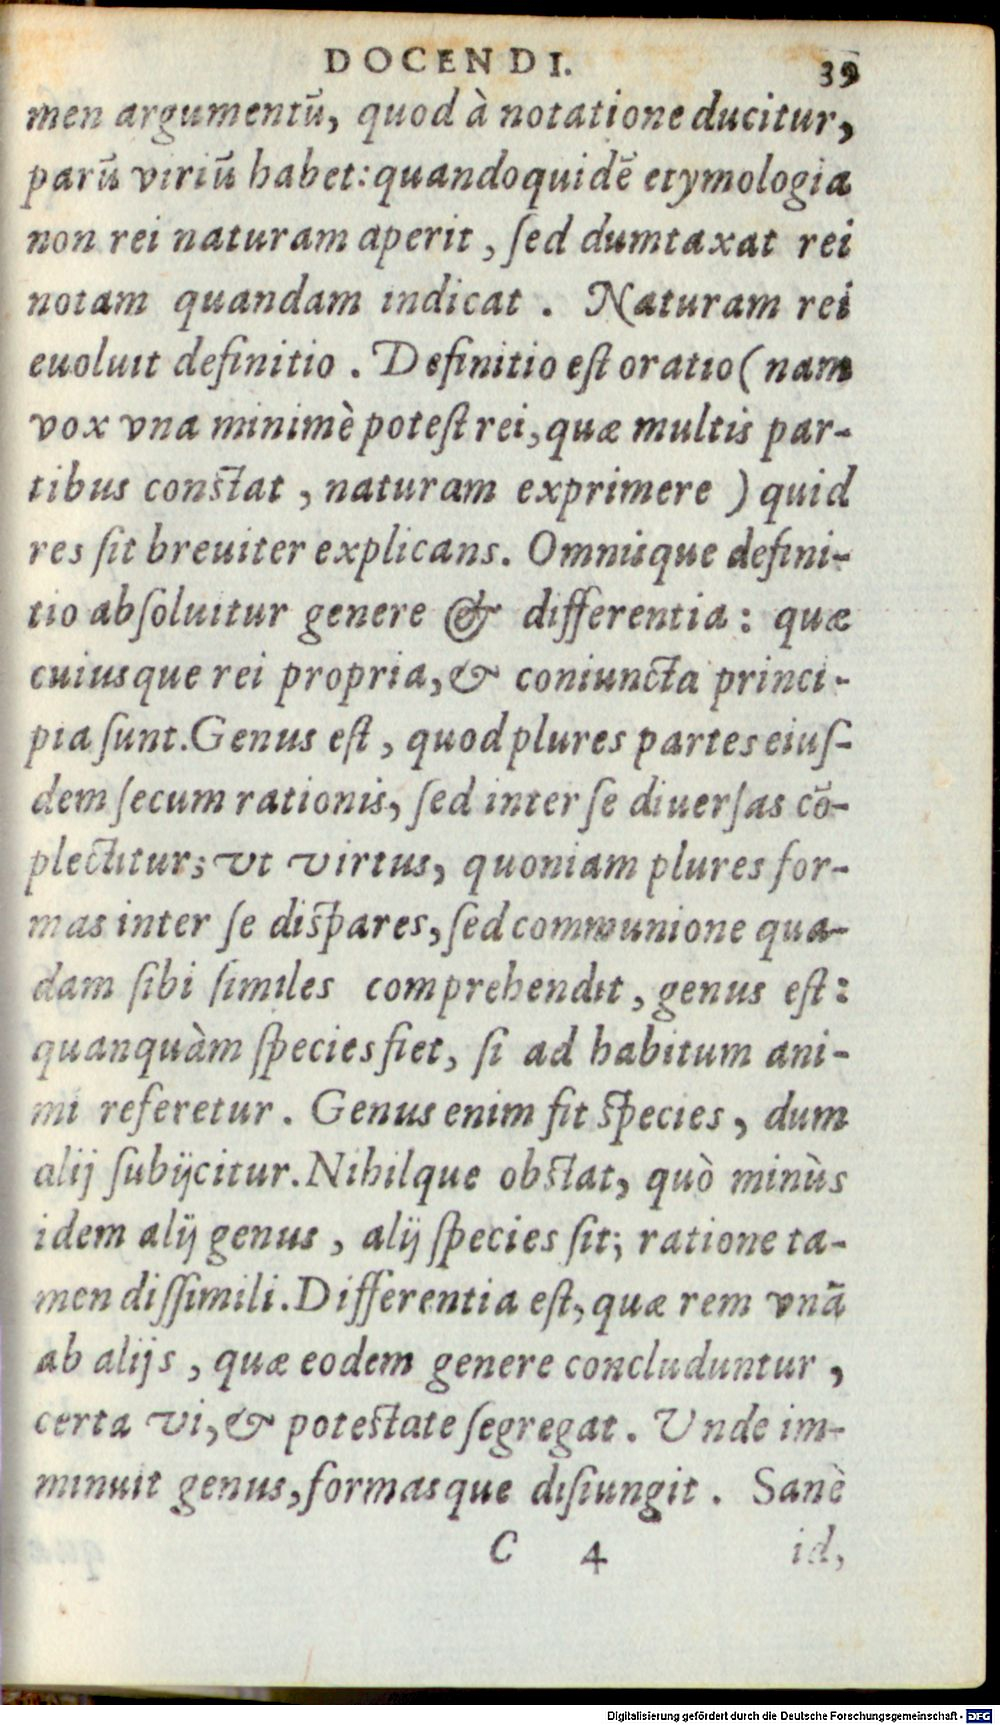 DOCENDI. 39
men argumentū, quod à notatione ducitur,
parū viriū habet: quandoquidē etymologia
non rei naturam aperit, ſed dumtaxat rei
notam quandam indicat. Naturam rei
euoluit definitio. Definitio eſt oratio (nam
vox vna minimè poteſt rei, quæ multis par-
tibus conſtat, naturam exprimere) quid
res ſit breuiter explicans. Omnisque defini-
tio abſoluitur genere & differentia: quæ
cuiusque rei propria, & coniuncta princi-
pia ſunt. Genus eſt, quod plures partes eiuſ-
dem ſecum rationis, ſed inter ſe diuerſas cō-
plectitur; vt virtus, quoniam plures for-
mas inter ſe diſpares, ſed communione qua-
dam ſibi ſimiles comprehendit, genus eſt:
quanquàm ſpecies fiet, ſi ad habitum ani-
mi referetur. Genus enim fit ſpecies, dum
alij ſubijcitur. Nihilque obſtat, quò minùs
idem alij genus, alij ſpecies ſit; ratione ta-
men diſſimili. Differentia eſt, quæ rem vnā
ab alijs, quæ eodem genere concluduntur,
certa vi, & poteſtate ſegregat. Unde im-
minuit genus, formasque diſiungit. Sanè
C 4 id,
Digitalisierung gefördert durch die Deutsche Forschungsgemeinschaft - DFG